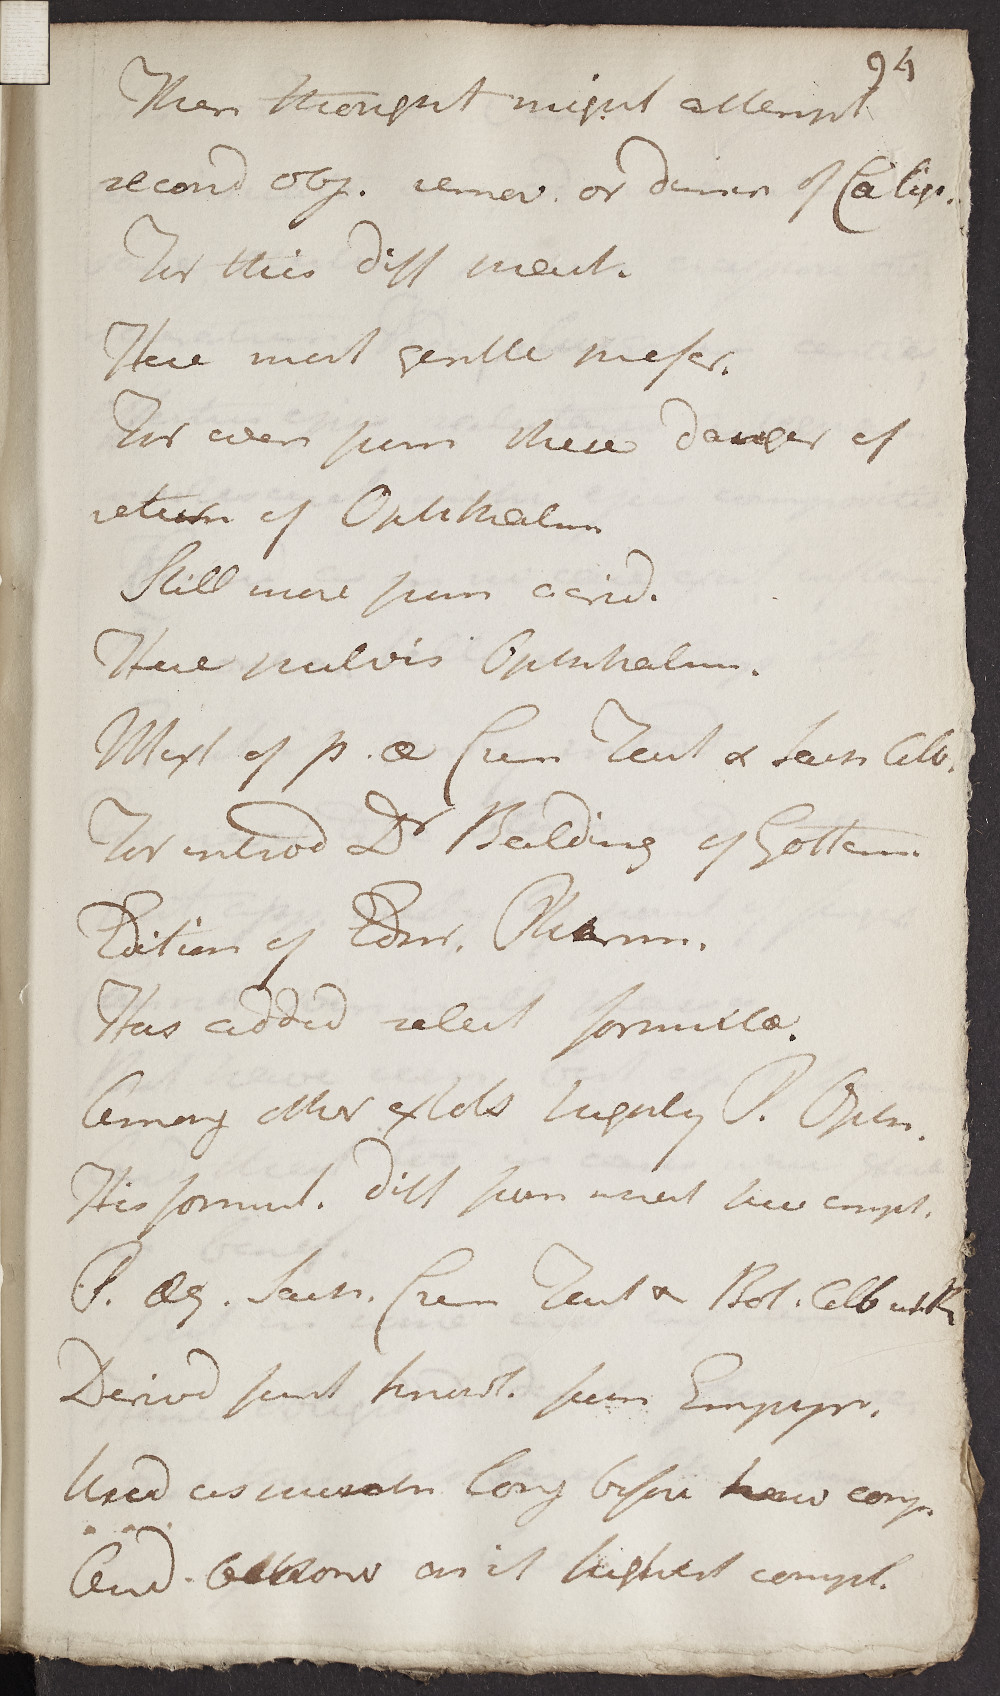 94
Then thought might attempt
second obj. remov. or dimin of Calig.
For this diff ment.
Here most gentle prefer.
For even from these danger of
return of Ophthalm
Still more from acrid.
Here pulvis Ophthalm.
Mixt of p. æ Crem Tart & Sacch Alb.
For introd Dr Balding of Gotten.
Edition of Edinr. Pharm.
Has added select formulæ.
Among other extols highly P. Ophth.
His formul. diff from what here empl.
P. æq. Sacch. Crem Tart & Bol. Alb
Derivd first knowl. from Empyr.
Used as long before knew comp.
And on it highest compl.